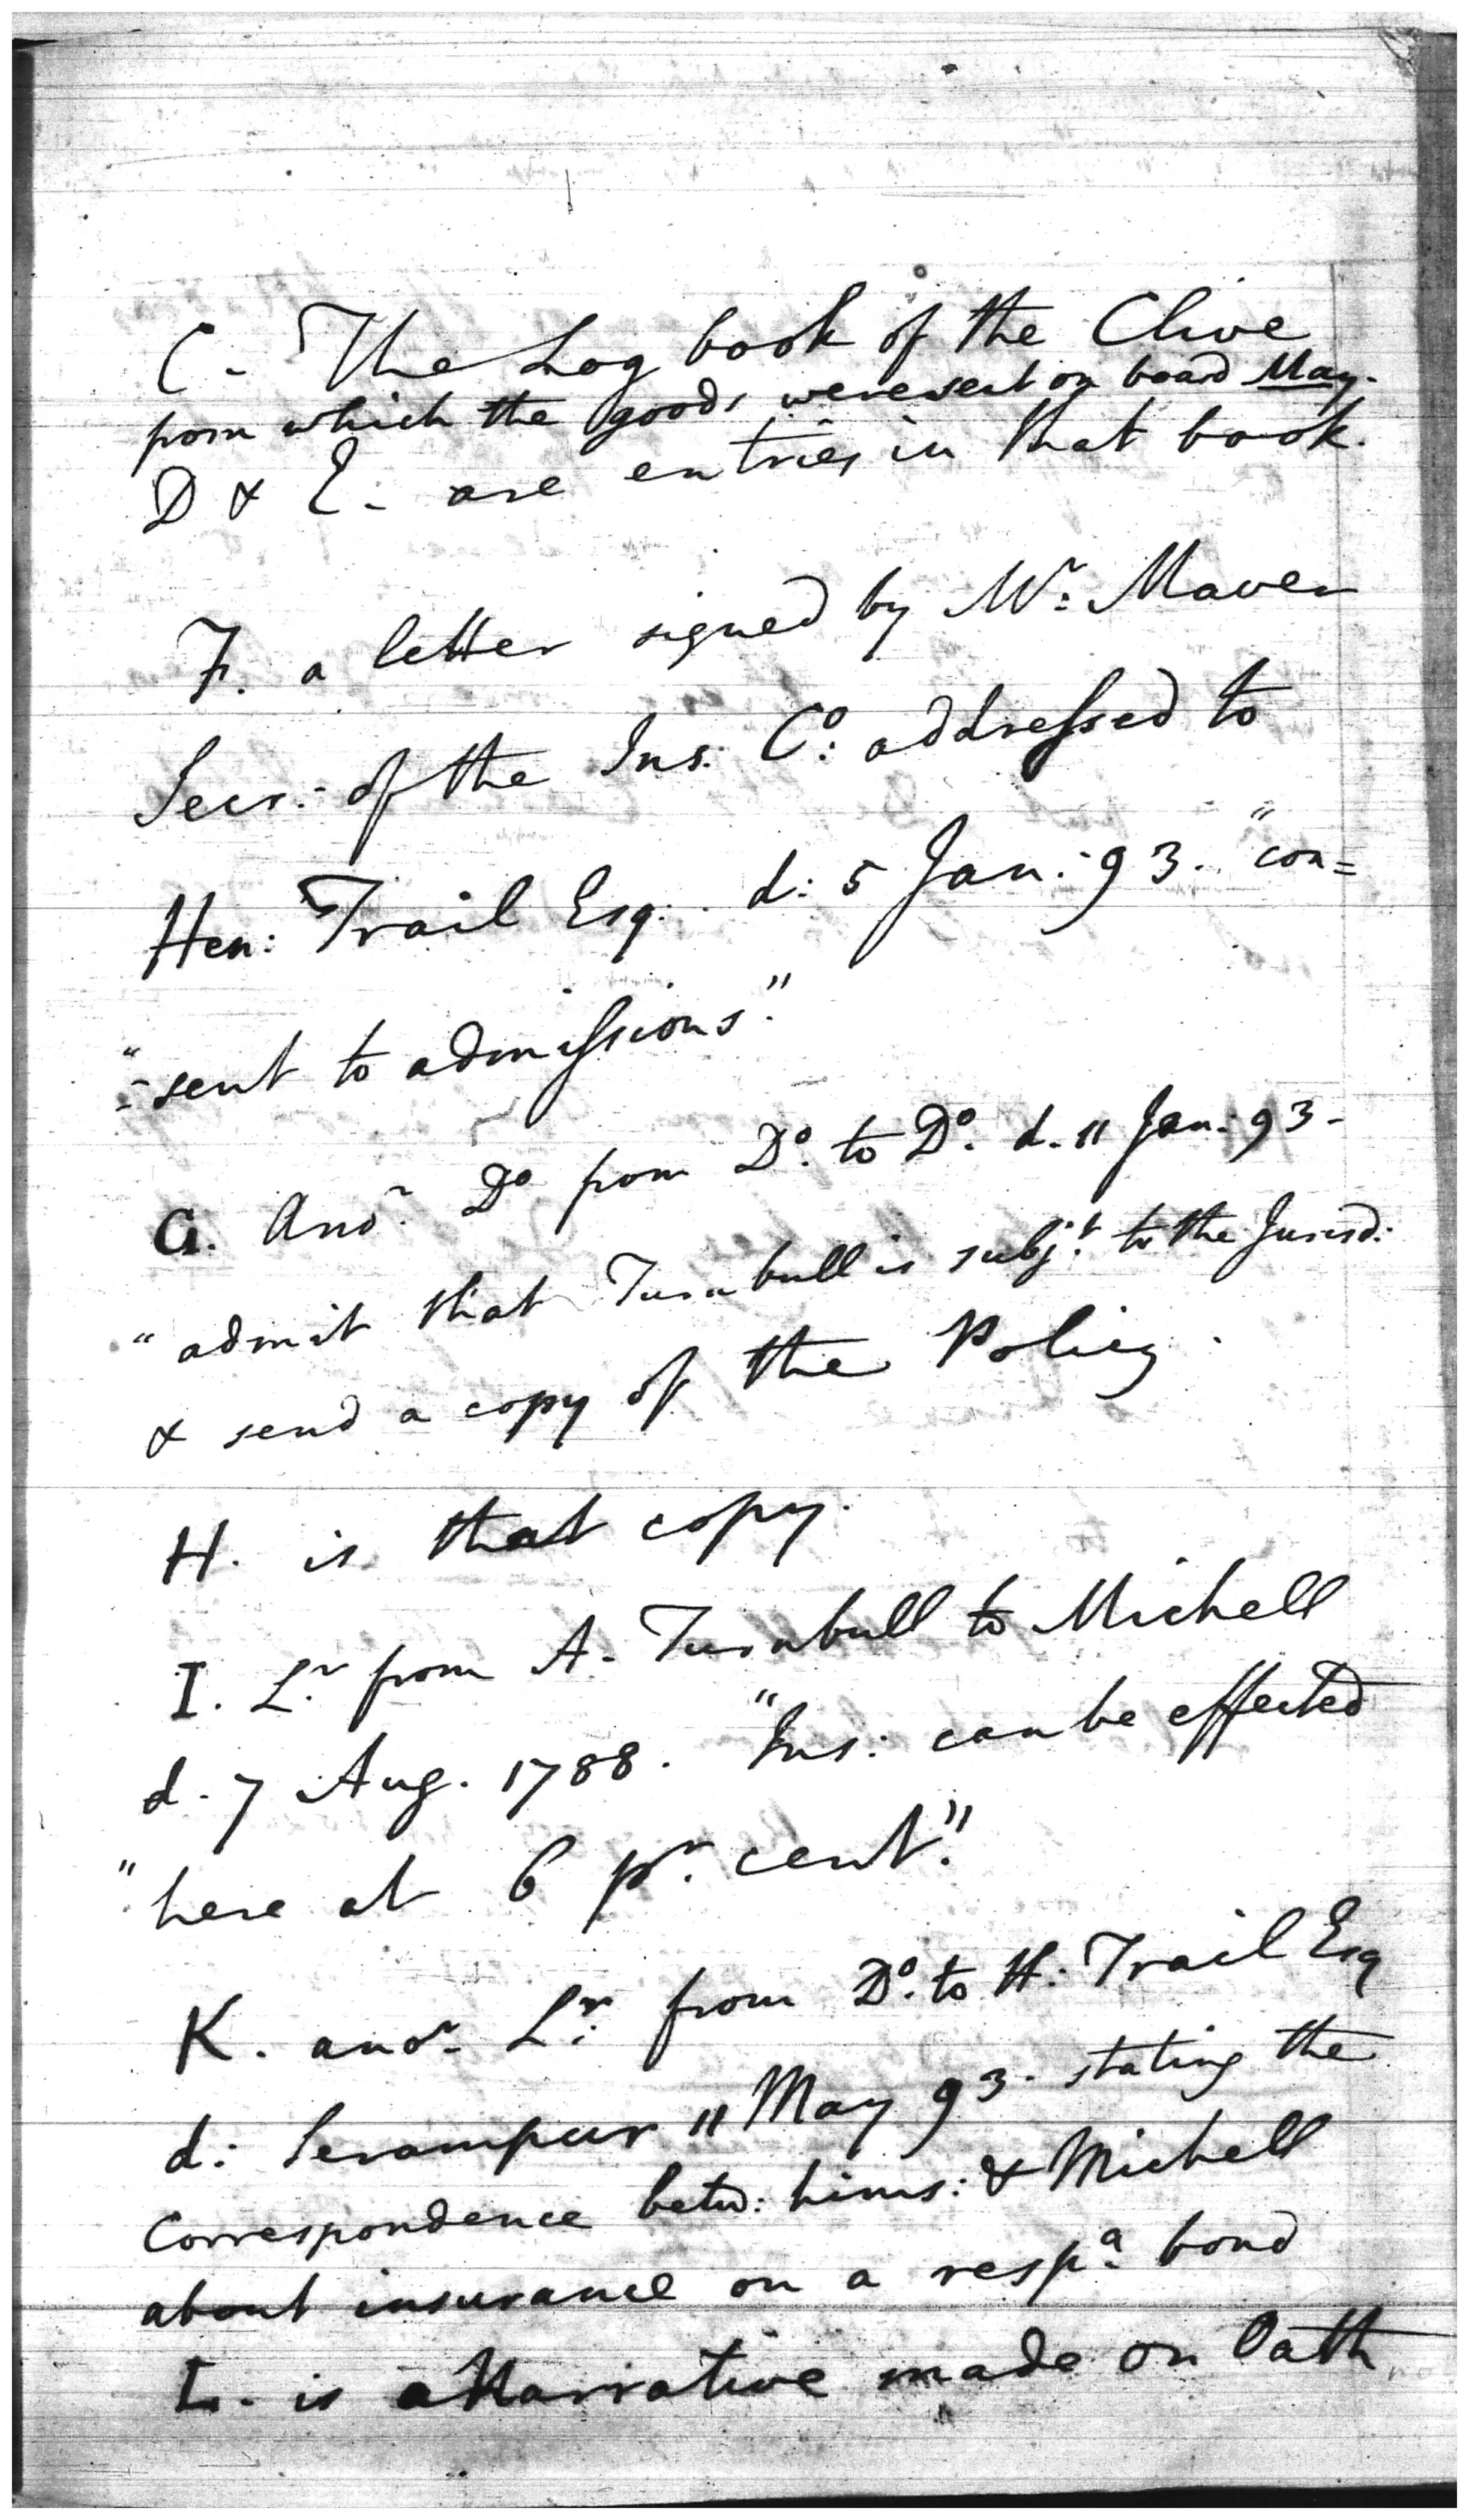 C - The Log book of the Clive
from which the goods were sent on board May.
D & E - are entries in that book.
F. a letter signed by Mr: Maver
Secr: of the Ins: Co: addressed to
Hen: Trail Esq: d: 5 Jan: 93. "con=
"=sent to admissions."
G. Anor. Do from Do. to Do. d. 11 Jan: 93 -
"admit that Turnbull is subjt. to the Jurisd:
& send a copy of the Policy.
H. is that copy.
I. Lr. from A. Turnbull to Michell
d. 7 Aug. 1788. "Ins: can be effected
"here at 6 pr. cent."
K. anor. Lr: from Do. to H: Trail Esq
d: Serampur 11 May 93. stating the
Correspondence betw: hims: & Michell
about insurance on a respa. bond
L. is a Narrative made on Oath